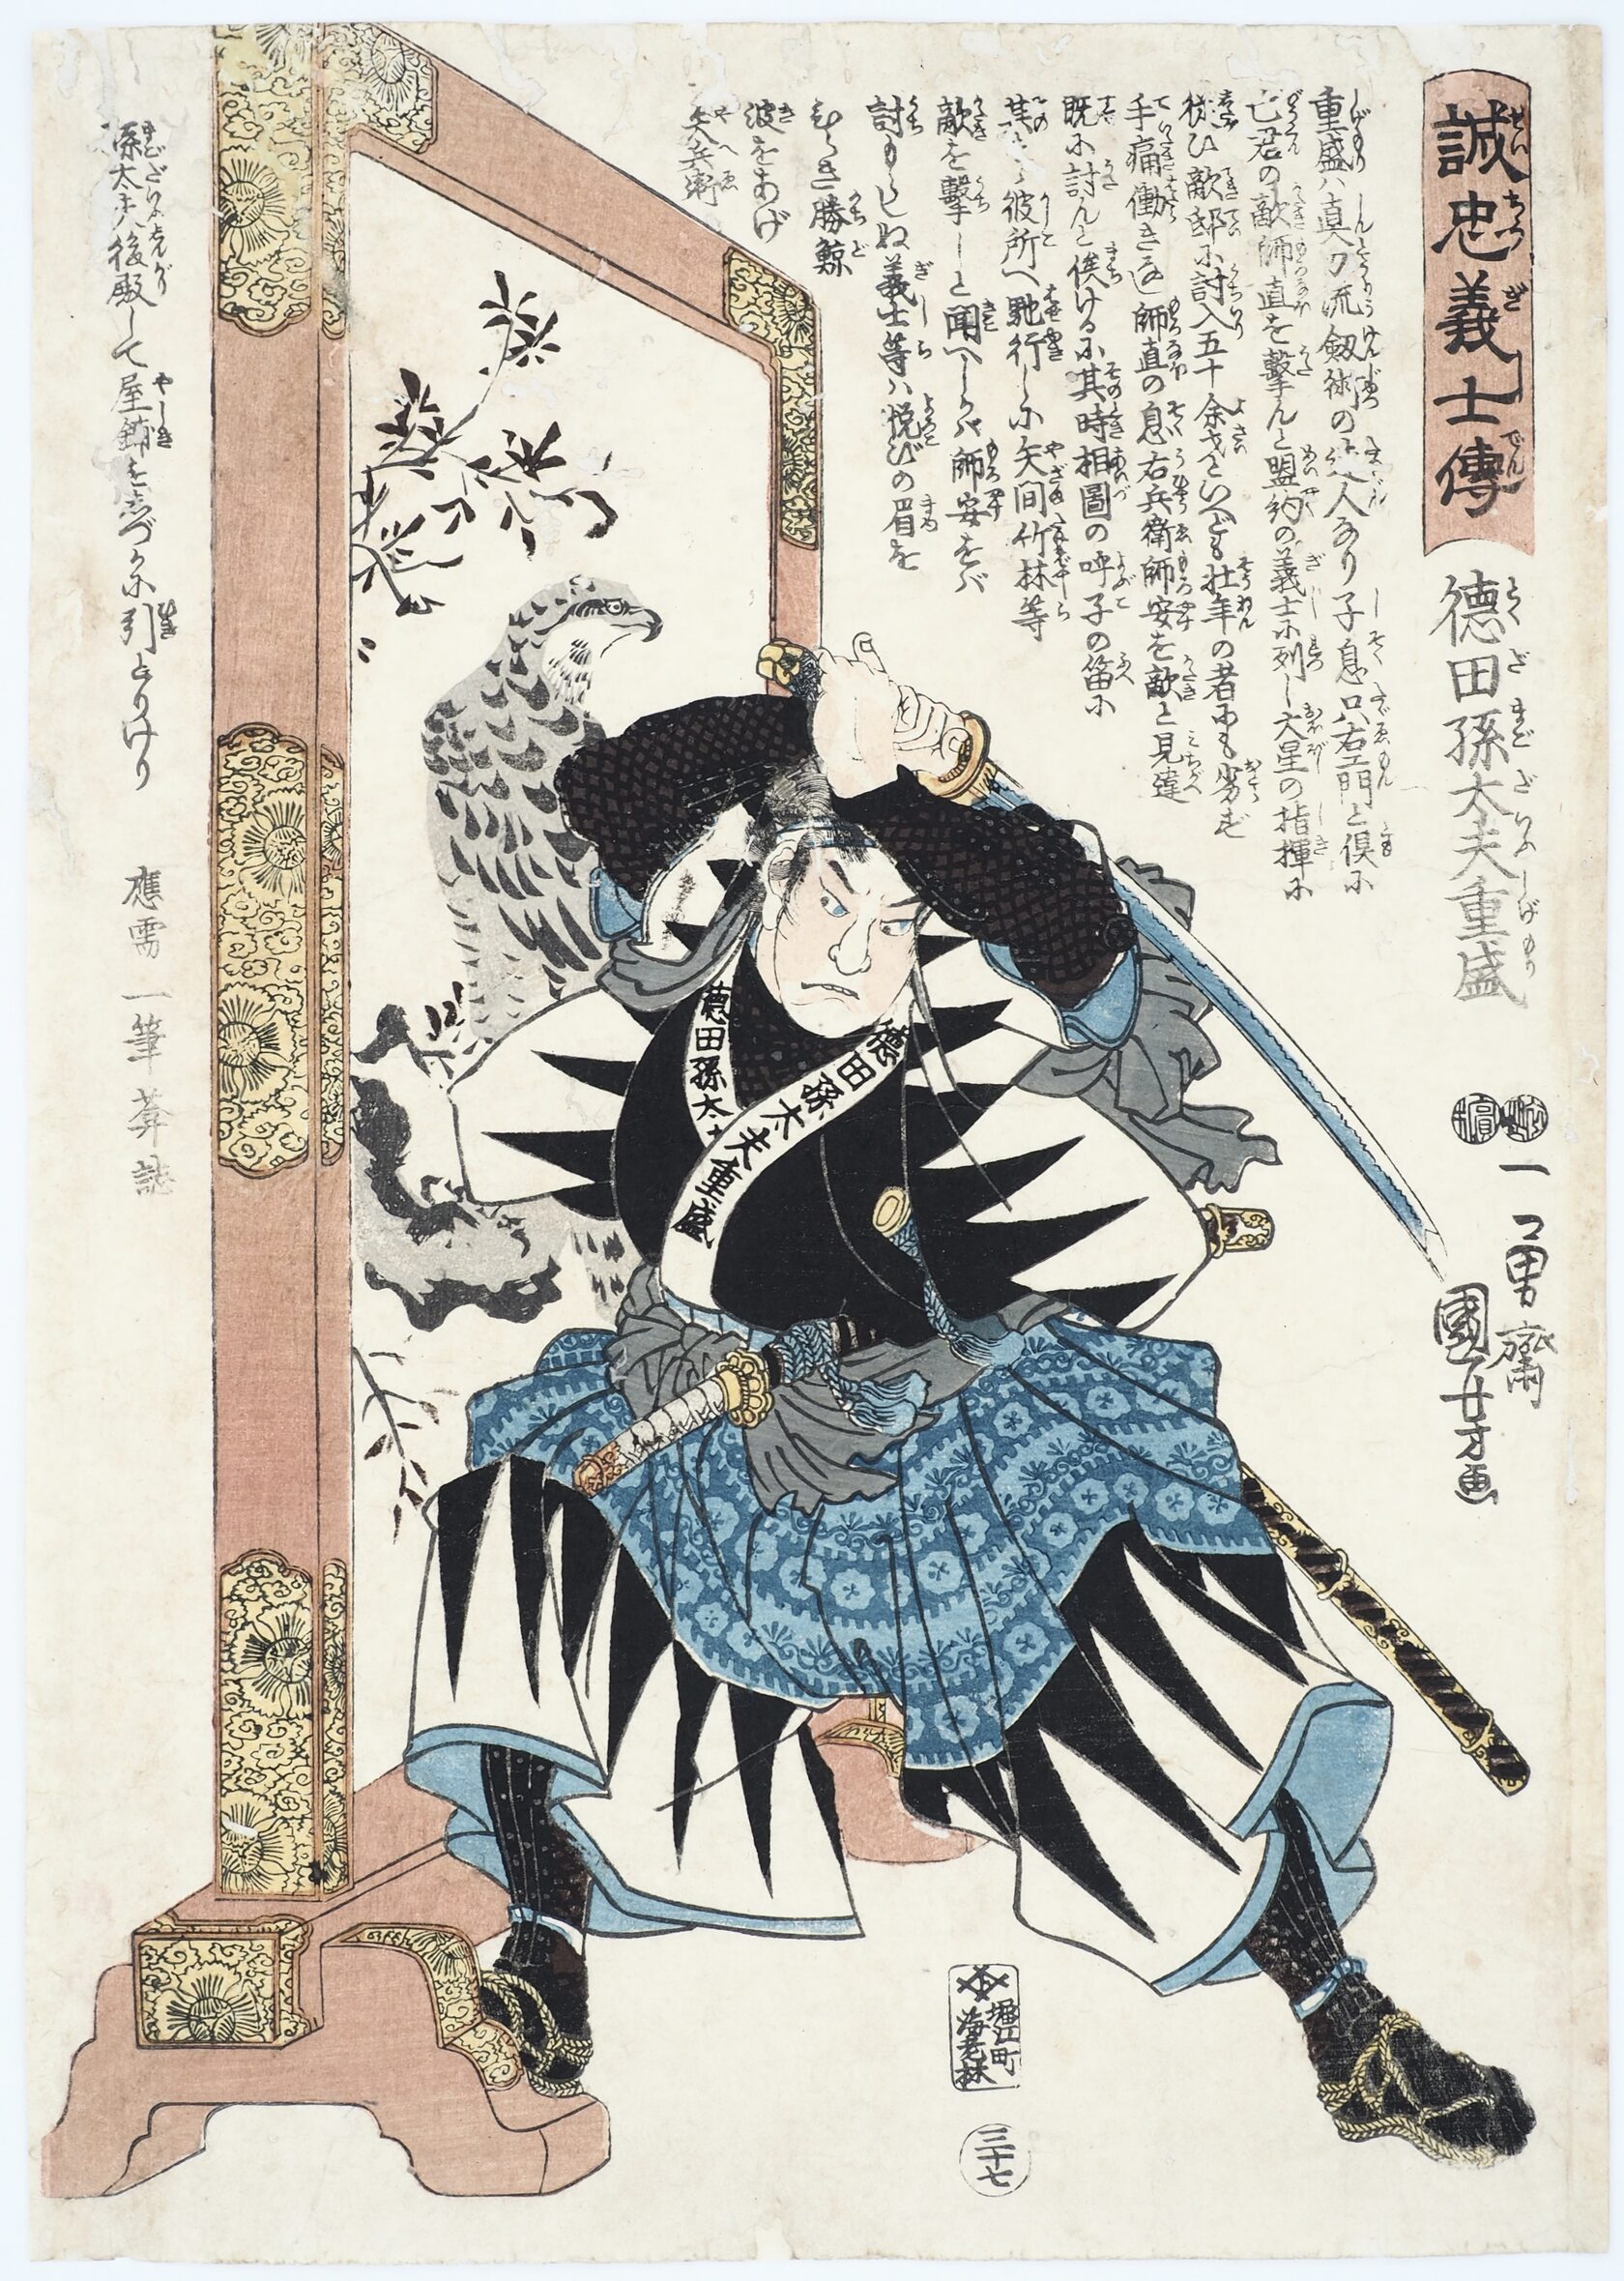 誠忠義士傳
せいちうぎしでん
德田孫太夫重盛
とくだまごだいふしげもり
一勇齋
國芳画
重盛ハ真刀流劔術の達人なり子息只右エ門と倶に
亡君の敵師直を撃んと盟約の義士に列し大星の指揮に
従ひ敵邸に討入五十余才といへども壮年の者にも劣ず
手痛働きなし師直の息右兵衛師安を敵と見違
既に討んと俟ける小其時相圖の呼子の笛に
其、彼所へ馳行しに矢間竹林等
敵を撃しと聞へしかバ師安をバ
討もらしぬ義士等ハ悦びの眉を
ひらき勝鯨
波をあげ
矢兵衛
孫太夫後殿して屋鋪をしづかに引とりけり
應需 一筆菴誌
德田孫太
德田孫太夫重盛
堀江町
海老林
三十七